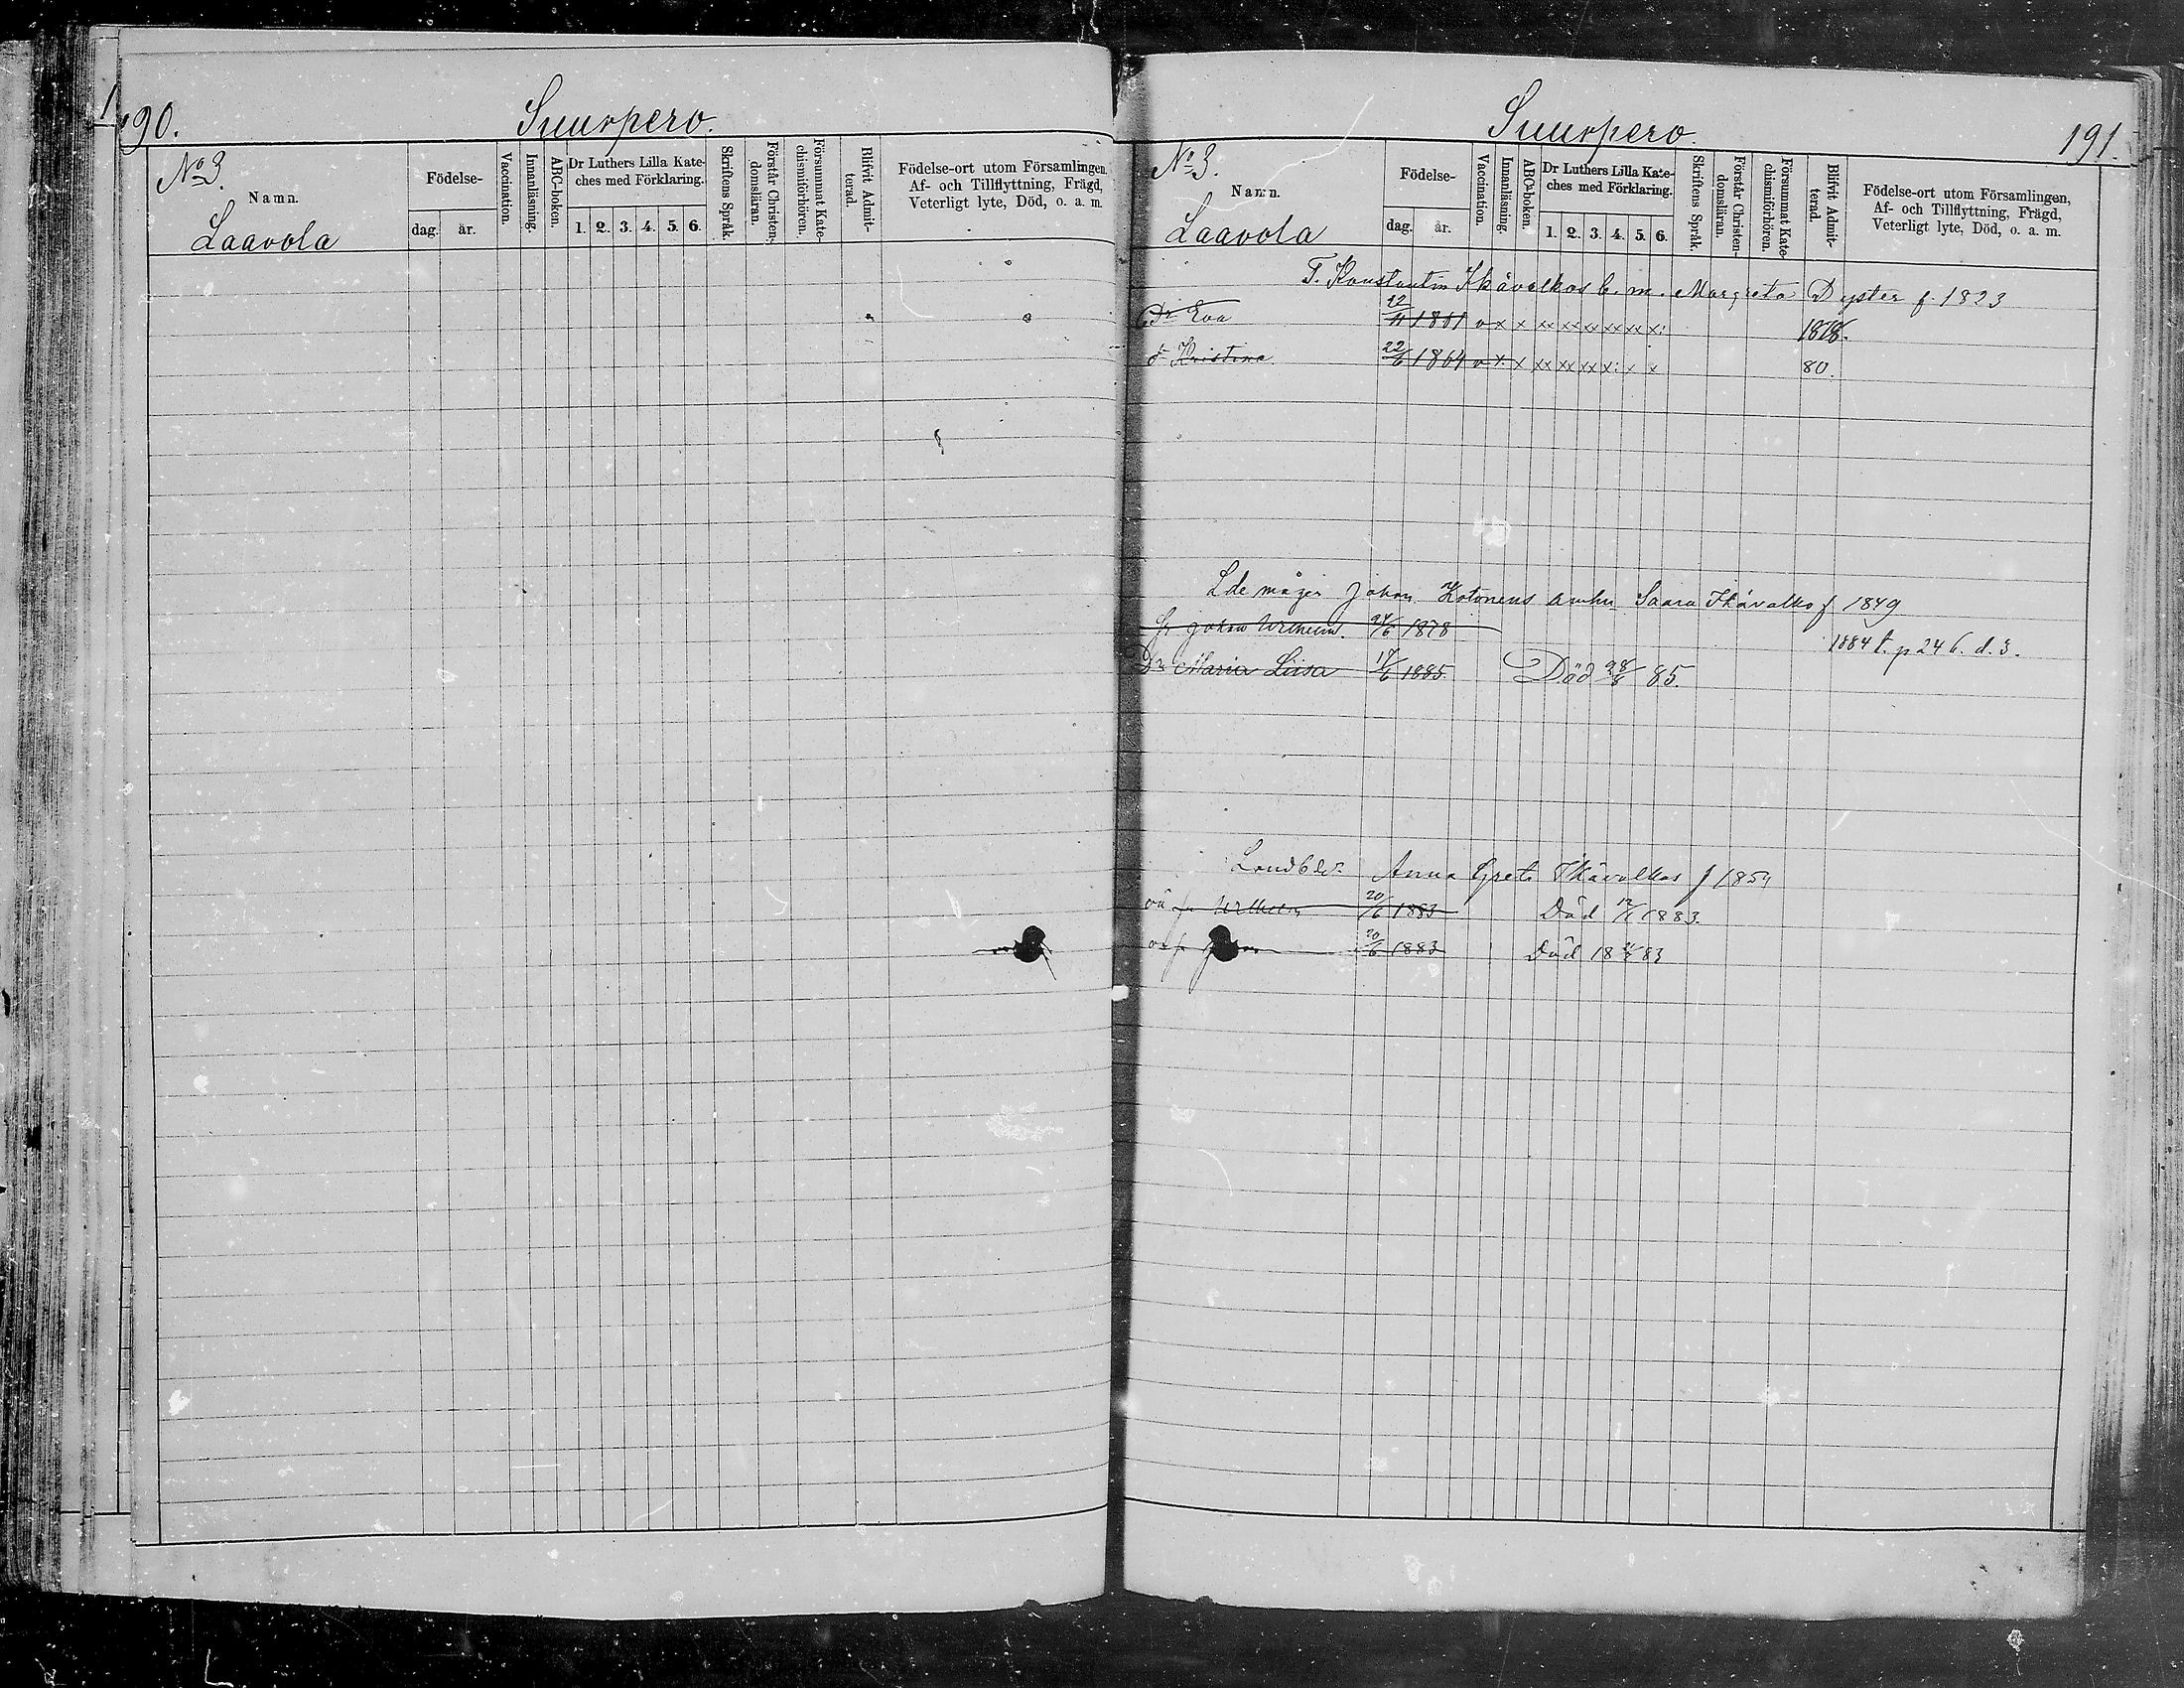 190.
Suurpero.
No 3.
Namn.
Laavola
Födelse-
dag.
år.
Vaccination.
Innanläsning.
ABC-boken.
Dr Luthers Lilla Kate-
ches med Förklaring.
1. 2. 3. 4. 5. 6.
Skriftens Språk.
Förstår Christen-
domsläran.
Försummat Kate-
chismiförhören.
Blifvit Admit-
terad.
Födelse-ort utom Församlingen,
Af- och Tillflyttning, Frägd,
Veterligt lyte, Död, o. a. m.
Suurpero.
191.
No 3.
Namn.
Laavola
Födelse-
dag.
år.
Vaccination.
Innanläsning.
ABC-boken.
Dr Luthers Lilla Kate-
ches med Förklaring.
1. 2. 3. 4. 5. 6.
Skriftens Språk.
Förstår Christen-
domsläran.
Försummat Kate-
chismiförhören.
Blifvit Admit-
terad.
Födelse-ort utom Församlingen,
Af- och Tillflyttning, Frägd,
Veterligt lyte, Död, o. a. m.
T. Konstantin Ikävalkos E. m. Margreta Dyster f. 1823
Dr Eva 12/11 1861 v x x xx xx xx xx xx x: 1878.
dr Kristina 22/6 1864 v x x xx xx xx x: x x 80.
Lde mågen Johan Kotonens Saara Ikävalko f 1849
Sr Johan Wilhelm. 24/6 1878 1884 t. p 246. d. 3.
Dr Maria Liisa 17/6 1885. Död 28/8 85.
Anna Greta Ikävalkos f 1854
oä sr Wilhelm 20/6 1883 Död 1883.
oä sr 20/6 1883 Död 18 83